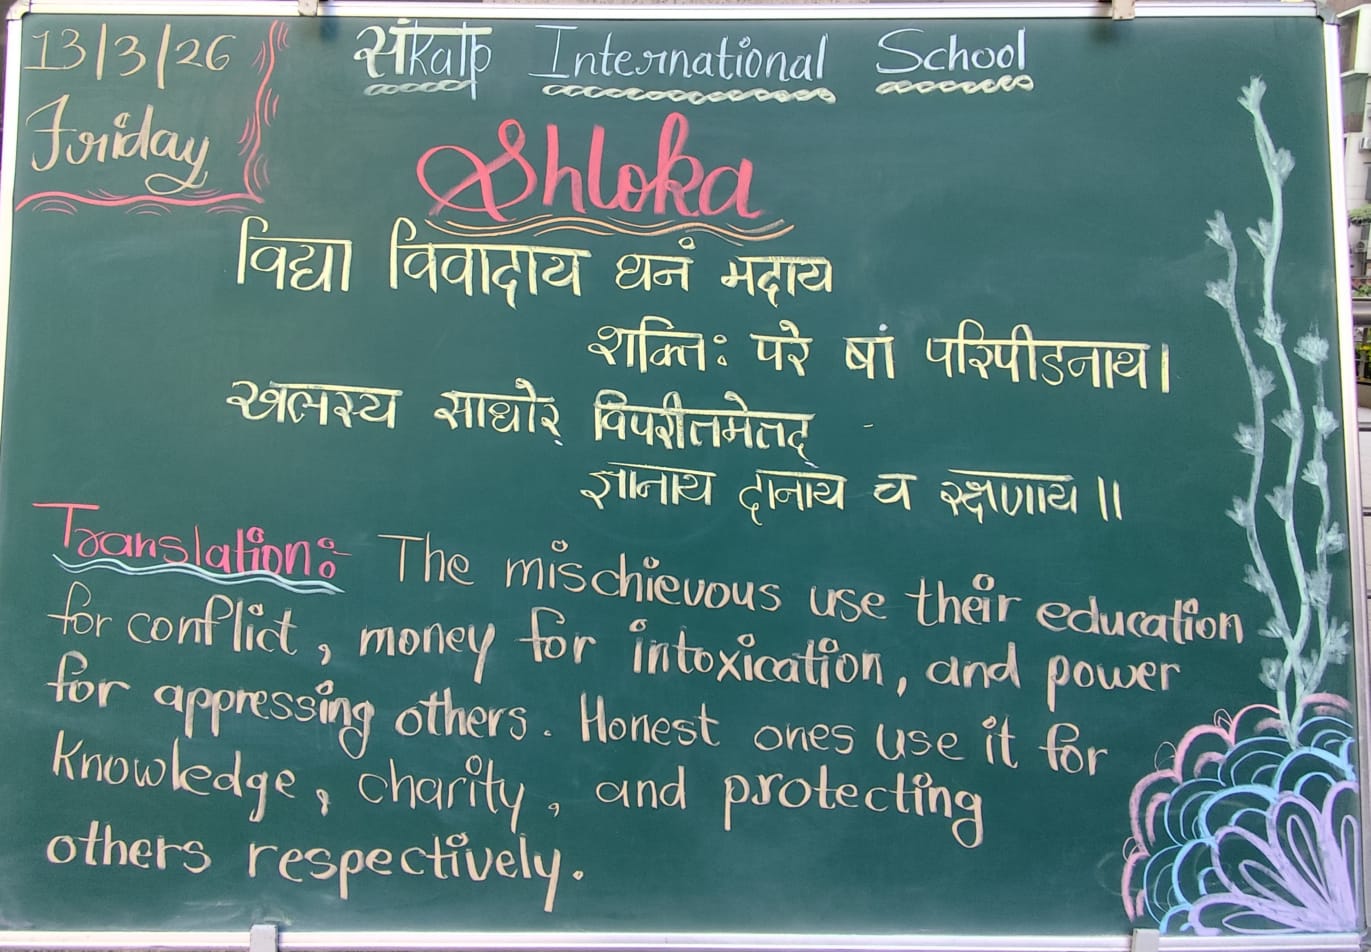 13/3/26
Friday
संkalp International School
Shloka
विद्या विवादाय धनं मदाय
शक्तिः परे षां परिपीडनाय।
खलस्य साधोर् विपरीतमेतद्
ज्ञानाय दानाय च रक्षणाय॥
Translation:- The mischievous use their education
for conflict, money for intoxication, and power
for appressing others. Honest ones use it for
Knowledge, charity, and protecting
others respectively.